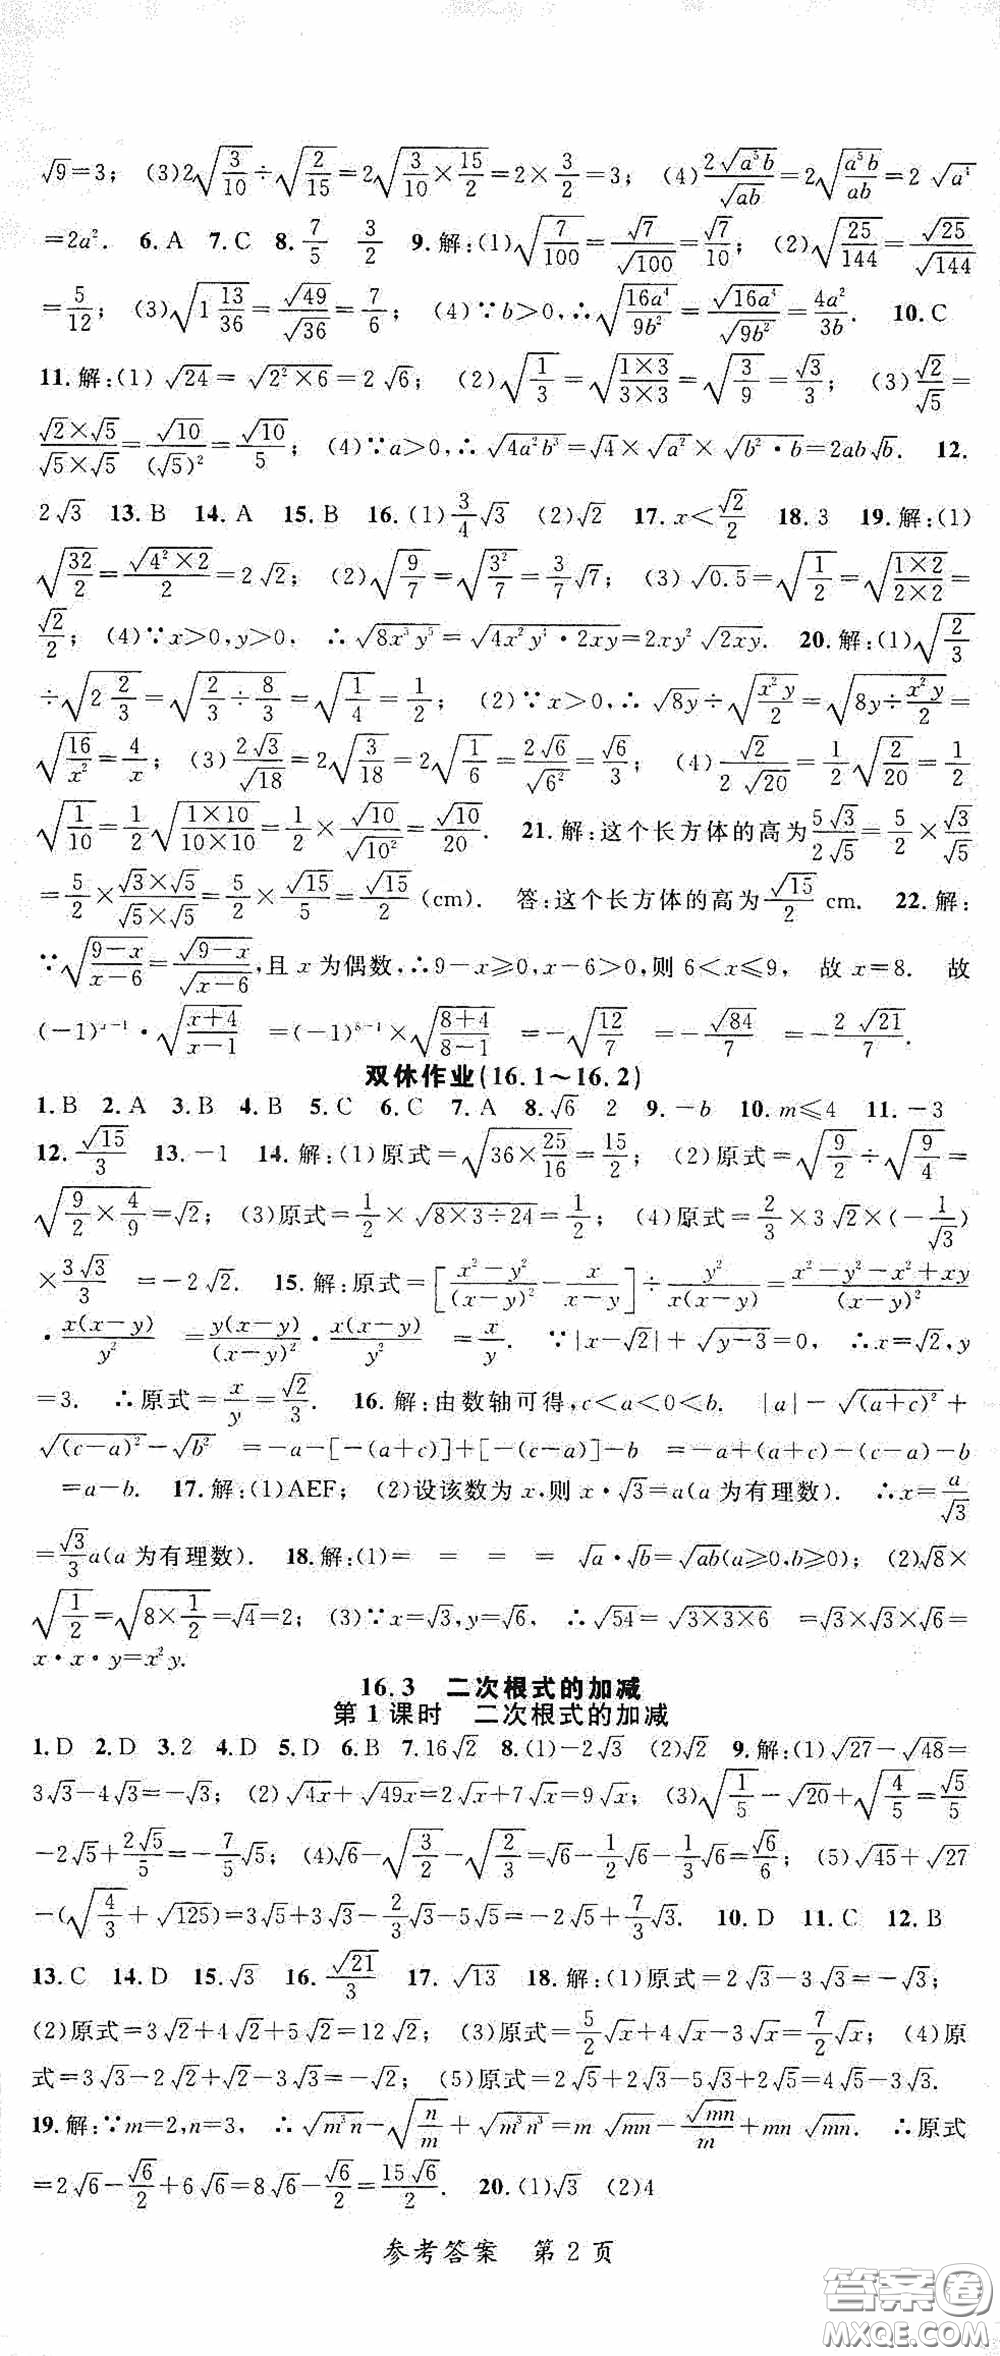 √9=3; (3)2√(3/10)÷√(2/15)=2√(3/10×15/2)=2×3/2=3; (4)2√(a⁵b)/√(ab)=2√(a⁵b/ab)=2√a⁴
=2a². 6.A 7.C 8.7/5 3/2 9.解:(1)√(7/100)=√7/√100=√7/10; (2)√(25/144)=√25/√144
=5/12; (3)√(1 13/36)=√49/√36=7/6; (4)∵b>0,∴√(16a⁴/9b²)=√(16a⁴)/√(9b²)=4a²/3b. 10.C
11.解:(1)√24=√(2²×6)=2√6; (2)√(1/3)=√(1×3/3×3)=√(3/9)=√3/3; (3)√2/√5=
√2×√5/√5×√5=√10/(√5)²=√10/5; (4)∵a>0,∴√(4a²b³)=√4×√a²×√(b²·b)=2ab√b. 12.
2√3 13.B 14.A 15.B 16.(1)3/4√3 (2)√2 17.x<√2/2 18.3 19.解:(1)
√(32/2)=√(4²×2)/2=2√2; (2)√(9/7)=√(3²/7)=3/7√7; (3)√0.5=√(1/2)=√(1×2/2×2)=
√2/2; (4)∵x>0,y>0. ∴√(8x³y⁵)=√(4x²y⁴·2xy)=2xy²√(2xy). 20.解:(1)√(2/3)
÷√(2 2/3)=√(2/3÷8/3)=√(1/4)=1/2; (2)∵x>0,∴√(8y)÷√(x²y/2)=√(8y÷x²y/2)=
√(16/x²)=4/x; (3)2√3/√18=2√(3/18)=2√(1/6)=2√6/√6²=√6/3; (4)√2/2√20=1/2√(2/20)=1/2
√(1/10)=1/2√(1×10/10×10)=1/2×√10/√10²=√10/20. 21.解:这个长方体的高为5√3/2√5=5/2×√3/√5
=5/2×√3×√5/√5×√5=5/2×√15/5=√15/2(cm). 答:这个长方体的高为√15/2 cm. 22.解:
∵√(9-x/x-6)=√(9-x)/√(x-6),且x为偶数,∴9-x≥0,x-6>0,则6<x≤9, 故x=8. 故
(-1)ˣ⁻¹·√(x+4/x-1) =(-1)⁸⁻¹×√(8+4/8-1)=-√(12/7) =-√84/7=-2√21/7.
双休作业(16.1~16.2)
1.B 2.A 3.B 4.B 5.C 6.C 7.A 8.√6 2 9.-b 10.m≤4 11.-3
12.√15/3 13.-1 14.解:(1)原式=√(36×25/16)=15/2; (2)原式=√(9/2)÷√(9/4)=
√(9/2×4/9)=√2; (3)原式=1/2×√(8×3÷24)=1/2; (4)原式=2/3×3√2×(-1/√3)
×3√3/3 =-2√2. 15.解:原式=[x²-y²/(x-y)²-x/x-y]÷y²/x(x-y)=x²-y²-x²+xy/(x-y)²
·x(x-y)/y² =y(x-y)/(x-y)²·x(x-y)/y² =x/y. ∵|x-√2|+√(y-3)=0, ∴x=√2,y
=3. ∴原式=x/y=√2/3. 16.解:由数轴可得,c<a<0<b. |a|-√(a+c)²+
√(c-a)²-√b² =-a-[-(a+c)]+[-(c-a)]-b =-a+(a+c)-(c-a)-b
=a-b. 17.解:(1)AEF; (2)设该数为x,则x·√3=a(a为有理数). ∴x=a/√3
=√3/3a(a为有理数). 18.解:(1)= = = = √a·√b=√(ab)(a≥0,b≥0); (2)√8×
√(1/2)=√(8×1/2)=√4=2; (3)∵x=√3,y=√6, ∴√54=√(3×3×6) =√3×√3×√6=
x·x·y=x²y.
16.3 二次根式的加减
第1课时 二次根式的加减
1.D 2.D 3.2 4.D 5.D 6.B 7.16√2 8.(1)-2√3 (2)√2 9.解:(1)√27-√48=
3√3-4√3=-√3; (2)√(4x)+√(49x)=2√x+7√x=9√x; (3)√(1/5)-√20+√(4/5)=√5/5
-2√5+2√5/5=-7/5√5; (4)√6-√(3/2)-√(2/3)=√6-1/2√6-1/3√6=√6/6; (5)√45+√27
-(√(4/3)+√125)=3√5+3√3-2/3√3-5√5=-2√5+7/3√3. 10.D 11.C 12.B
13.C 14.D 15.√3 16.√21/3 17.√13 18.解:(1)原式=2√3-3√3=-√3;
(2)原式=3√2+4√2+5√2=12√2; (3)原式=5/2√x+4√x-3√x=7/2√x; (4)原
式=3√3-2√2+√2-3√3=-√2; (5)原式=2√5+2√3-5√3+2√5=4√5-3√3.
19.解:∵m=2,n=3, ∴√(m³n)-√(n/m)+√(m³n³)=m√(mn)-√(mn)/m+mn√(mn). ∴原式
=2√6-√6/2+6√6=8√6-√6/2=15√6/2. 20.(1)√3 (2)4
参考答案 第2页
答案卷
MXQE.COM